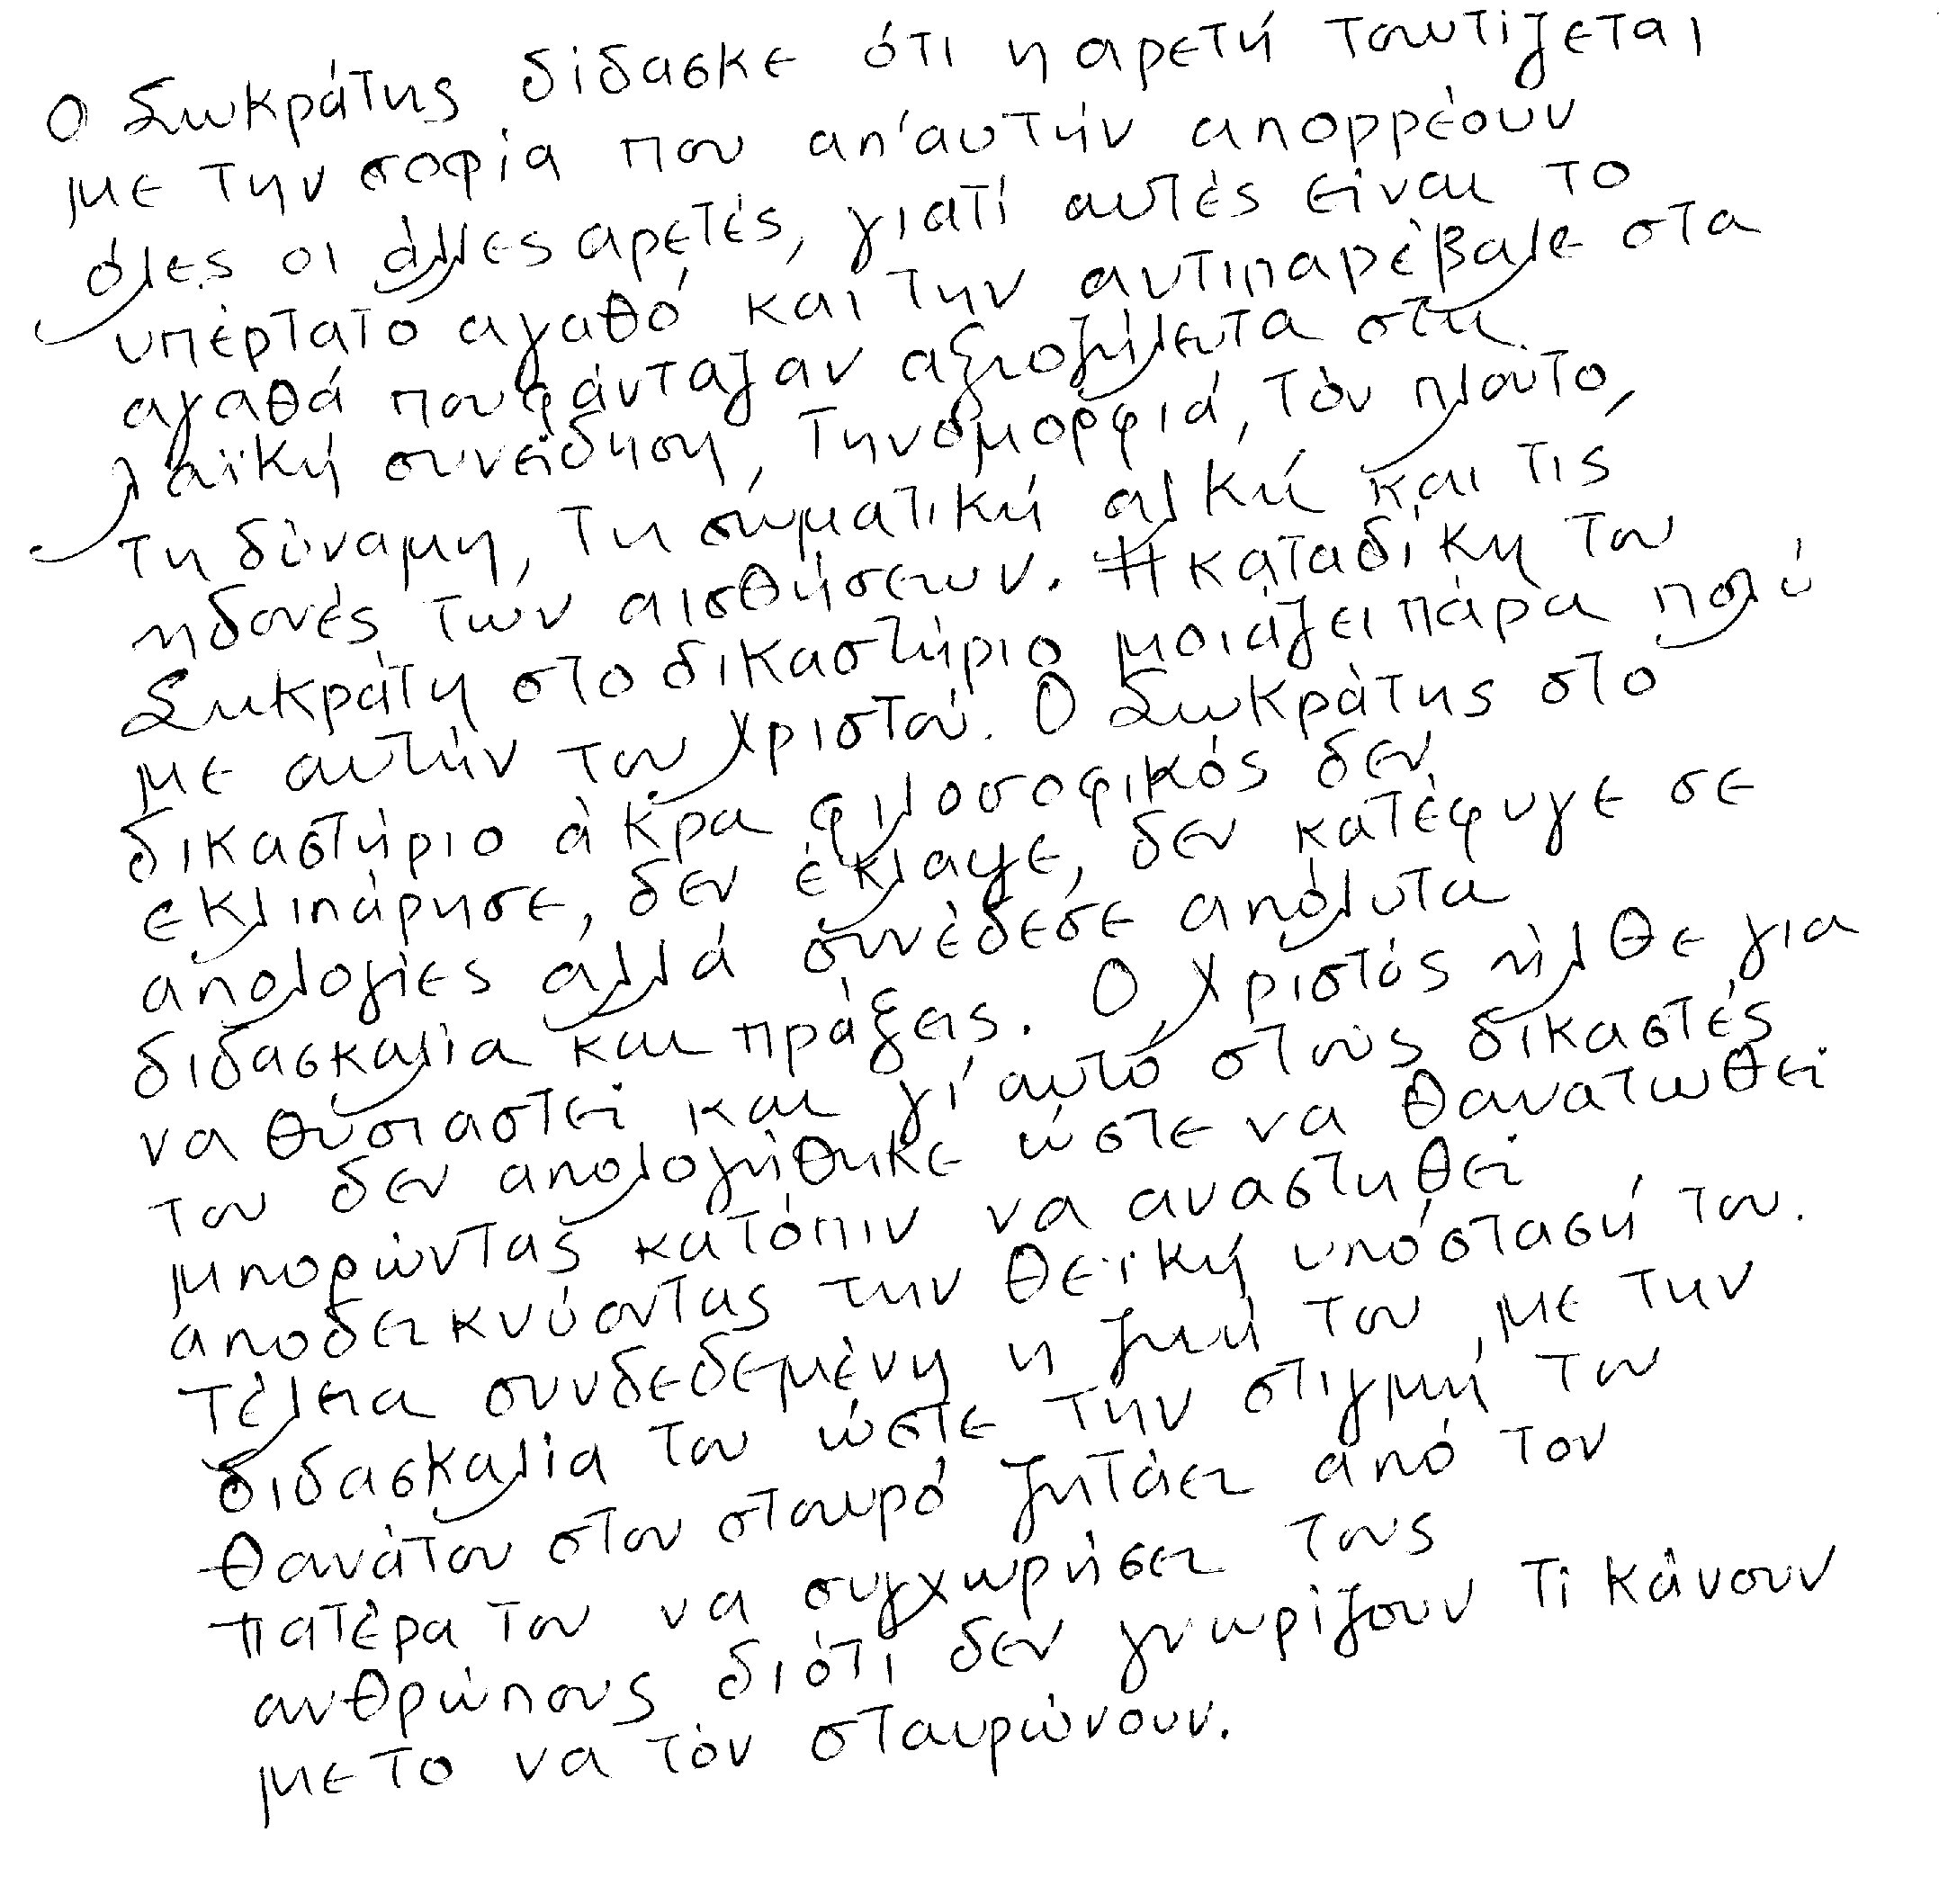 Ο Σωκράτης δίδασκε ότι η αρετή ταυτίζεται
με την σοφία που απ' αυτήν απορρέουν
όλες οι άλλες αρετές, γιατί αυτές είναι το
υπέρτατο αγαθό και την αντιπαρέβαλε στα
αγαθά που φάνταζαν αξιοζήλευτα στη
λαϊκή συνείδηση, την ομορφιά, τον πλούτο,
τη δύναμη, τη σωματική αλκή και τις
ηδονές των αισθήσεων. Η καταδίκη του
Σωκράτη στο δικαστήριο μοιάζει πάρα πολύ
με αυτήν του Χριστού. Ο Σωκράτης στο
δικαστήριο άκρα φιλοσοφικός δεν
εκλιπάρησε, δεν έκλαψε, δεν κατέφυγε σε
απολογίες αλλά συνέδεσε απόλυτα
διδασκαλία και πράξεις. Ο Χριστός ήλθε για
να θυσιαστεί και γι' αυτό στους δικαστές
του δεν απολογήθηκε ώστε να θανατωθεί
μπορώντας κατόπιν να αναστηθεί
αποδεικνύοντας την θεϊκή υπόστασή του.
Τέλεια συνδεδεμένη η ζωή του, με την
διδασκαλία του ώστε την στιγμή του
θανάτου στον σταυρό ζητάει από τον
πατέρα του να συγχωρήσει τους
ανθρώπους διότι δεν γνωρίζουν τί κάνουν
με το να τόν σταυρώνουν.